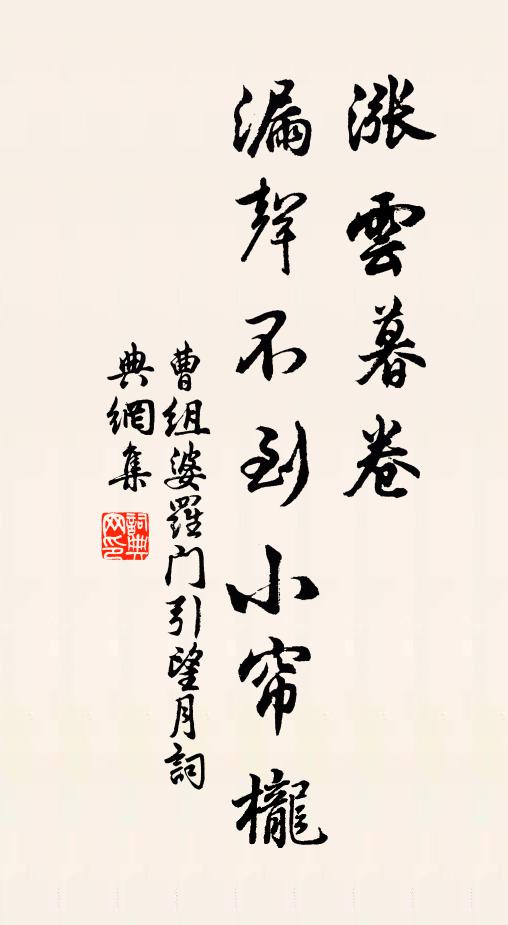 漲雲暮卷
漏聲不到小帘櫳
曹組婆羅門引望月詞
典網集
詞典
网印